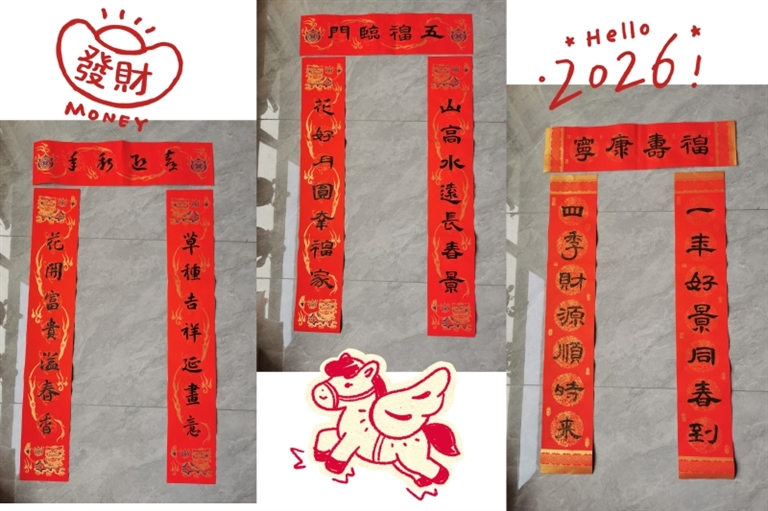 發財
MONEY
喜迎新年
草種吉祥延畫意
花開富貴溢春香
五福臨門
山高水遠長春景
花好月圓幸福家
Hello
2026!
福壽康寧
一年好景同春到
四季財源順時來